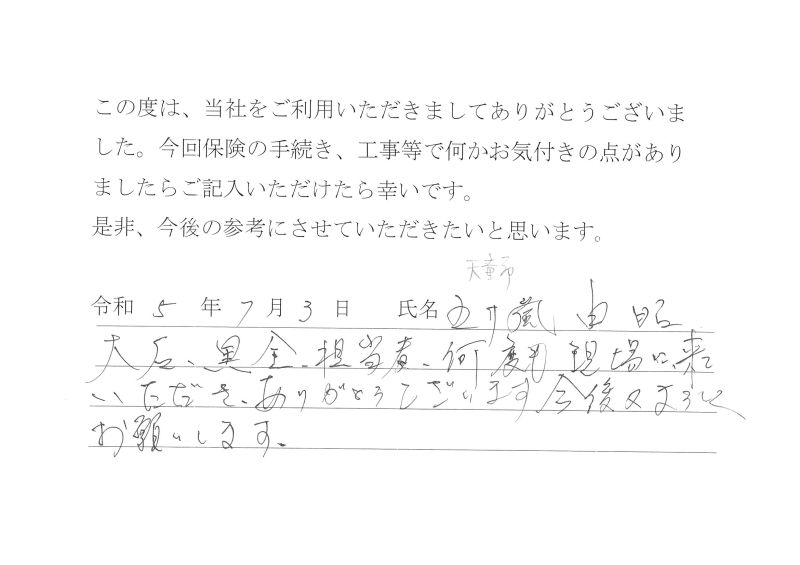 この度は、当社をご利用いただきましてありがとうございま
した。今回保険の手続き、工事等で何かお気付きの点があり
ましたらご記入いただけたら幸いです。
是非、今後の参考にさせていただきたいと思います。
天童市
令和 5 年 7 月 3 日 氏名 五十嵐 由昭
大石、黒金、担当者、何度も現場に来て
いただき、ありがとうございます今後又よろしく
お願いします。